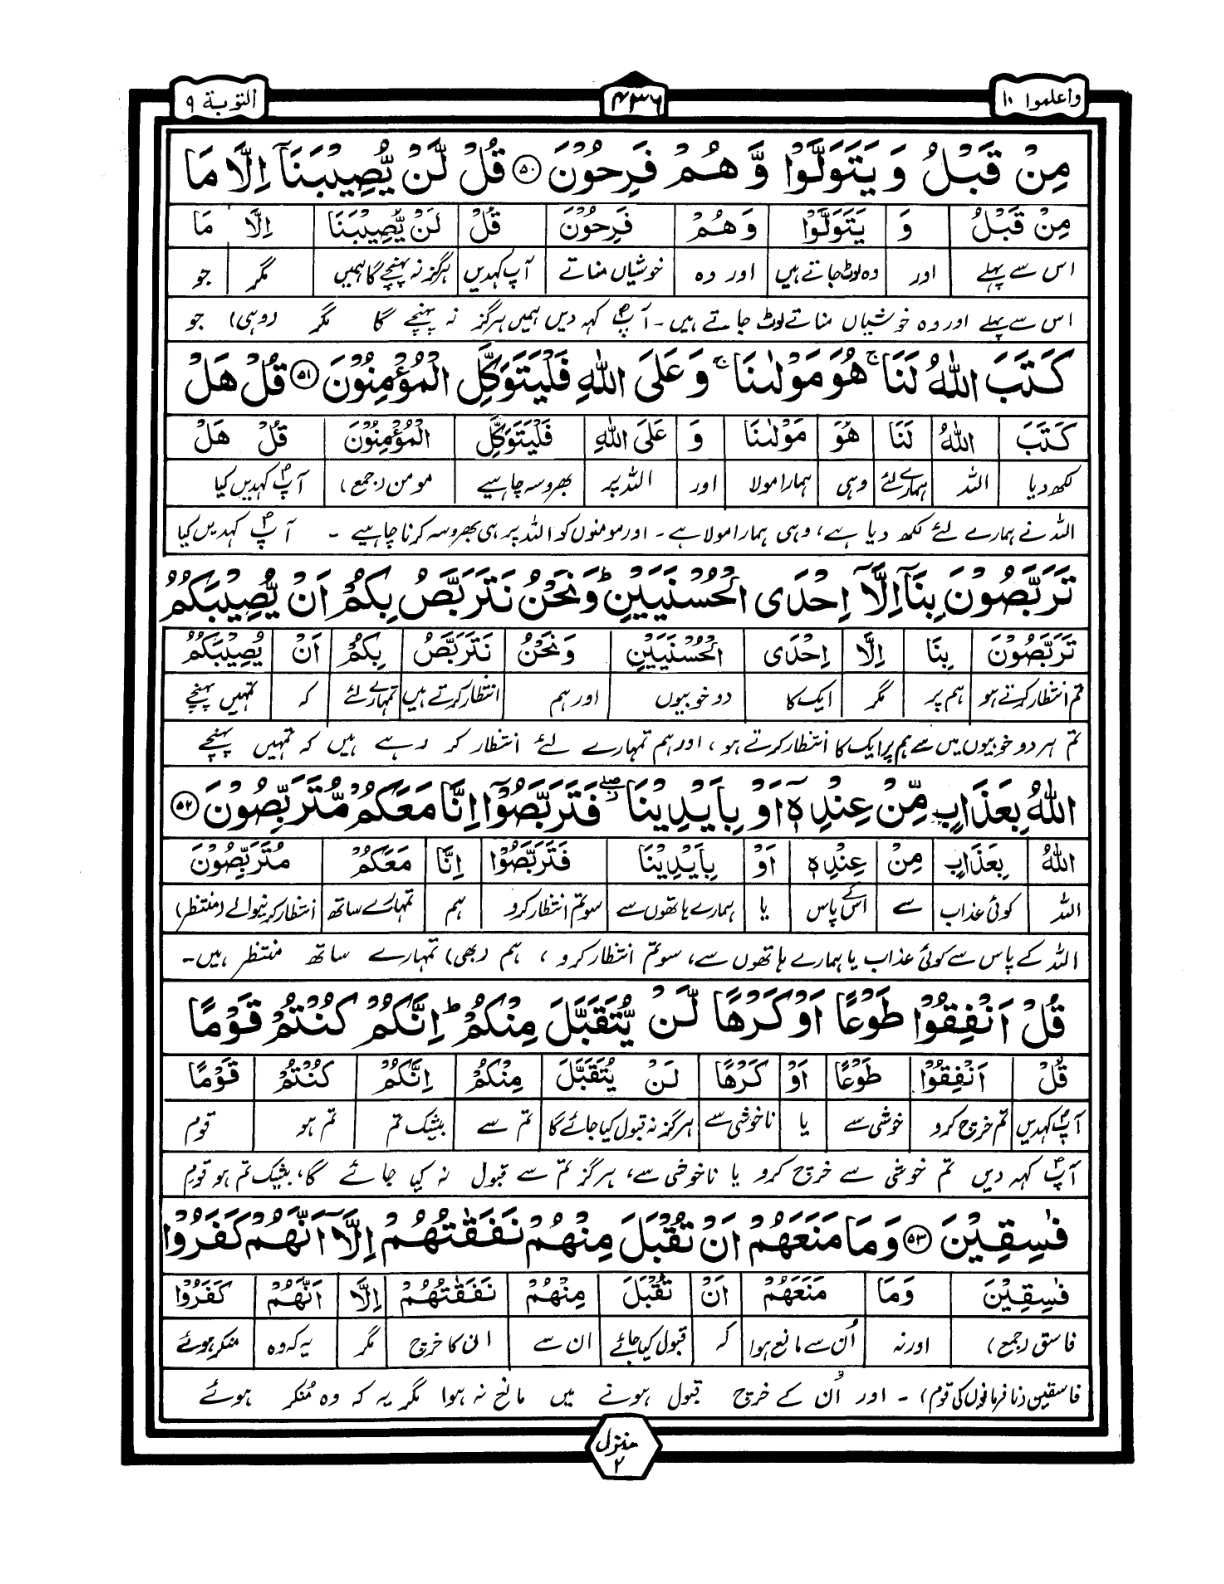 واعلموا ۱۰
۴۳۶
التوبة ۹
مِنْ قَبْلُ وَ یَتَوَلَّوْا وَّ هُمْ فَرِحُوْنَ ۝۵۰ قُلْ لَّنْ یُّصِیْبَنَاۤ اِلَّا مَا
مِنْ قَبْلُ وَ یَتَوَلَّوْا وَهُمْ فَرِحُوْنَ قُلْ لَنْ یُّصِیْبَنَا اِلَّا مَا
اس سے پہلے اور وہ لوٹ جاتے ہیں اور وہ خوشیاں مناتے آپ کہدیں ہرگز نہ پہنچے گا ہمیں مگر جو
اس سے پہلے اور وہ خوشیاں مناتے لوٹ جاتے ہیں۔ آپؐ کہہ دیں ہمیں ہرگز نہ پہنچے گا مگر (وہی) جو
كَتَبَ اللّٰهُ لَنَا ۚ هُوَ مَوْلٰىنَا ۚ وَ عَلَی اللّٰهِ فَلْیَتَوَكَّلِ الْمُؤْمِنُوْنَ ۝۵۱ قُلْ هَلْ
كَتَبَ اللّٰهُ لَنَا هُوَ مَوْلٰىنَا وَ عَلَی اللّٰهِ فَلْیَتَوَكَّلِ الْمُؤْمِنُوْنَ قُلْ هَلْ
لکھ دیا اللہ ہمارے لئے وہی ہمارا مولا اور اللہ پر بھروسہ چاہیے مومن (جمع) آپؐ کہدیں کیا
اللہ نے ہمارے لئے لکھ دیا ہے، وہی ہمارا مولا ہے۔ اور مومنوں کو اللہ پر ہی بھروسہ کرنا چاہیے ۔ آپؐ کہدیں کیا
تَرَبَّصُوْنَ بِنَاۤ اِلَّاۤ اِحْدَی الْحُسْنَیَیْنِ ؕ وَ نَحْنُ نَتَرَبَّصُ بِكُمْ اَنْ یُّصِیْبَكُمُ
تَرَبَّصُوْنَ بِنَا اِلَّا اِحْدَی الْحُسْنَیَیْنِ وَنَحْنُ نَتَرَبَّصُ بِكُمْ اَنْ یُّصِیْبَكُمُ
تم انتظار کرتے ہو ہم پر مگر ایک کا دو خوبیوں اور ہم انتظار کرتے ہیں تمہارے لئے کہ تمہیں پہنچے
تم ہر دو خوبیوں میں سے ہم پر ایک کا انتظار کرتے ہو، اور ہم تمہارے لئے انتظار کر رہے ہیں کہ تمہیں پہنچے
اللّٰهُ بِعَذَابٍ مِّنْ عِنْدِهٖۤ اَوْ بِاَیْدِیْنَا ۖؗ فَتَرَبَّصُوْۤا اِنَّا مَعَكُمْ مُّتَرَبِّصُوْنَ ۝۵۲
اللّٰهُ بِعَذَابٍ مِنْ عِنْدِهٖ اَوْ بِاَیْدِیْنَا فَتَرَبَّصُوْا اِنَّا مَعَكُمْ مُتَرَبِّصُوْنَ
اللہ کوئی عذاب سے اس کے پاس یا ہمارے ہاتھوں سے سو تم انتظار کرو ہم تمہارے ساتھ انتظار کرنیوالے (منتظر)
اللہ کے پاس سے کوئی عذاب یا ہمارے ہاتھوں سے، سو تم انتظار کرو، ہم (بھی) تمہارے ساتھ منتظر ہیں۔
قُلْ اَنْفِقُوْا طَوْعًا اَوْ كَرْهًا لَّنْ یُّتَقَبَّلَ مِنْكُمْ ؕ اِنَّكُمْ كُنْتُمْ قَوْمًا
قُلْ اَنْفِقُوْا طَوْعًا اَوْ كَرْهًا لَنْ یُتَقَبَّلَ مِنْكُمْ اِنَّكُمْ كُنْتُمْ قَوْمًا
آپؐ کہدیں تم خرچ کرو خوشی سے یا ناخوشی سے ہرگز نہ قبول کیا جائے گا تم سے بیشک تم تم ہو قوم
آپؐ کہہ دیں تم خوشی سے خرچ کرو یا ناخوشی سے، ہرگز تم سے قبول نہ کی جائے گا، بیشک تم ہو قوم
فٰسِقِیْنَ ۝۵۳ وَ مَا مَنَعَهُمْ اَنْ تُقْبَلَ مِنْهُمْ نَفَقٰتُهُمْ اِلَّاۤ اَنَّهُمْ كَفَرُوْا
فٰسِقِیْنَ وَمَا مَنَعَهُمْ اَنْ تُقْبَلَ مِنْهُمْ نَفَقٰتُهُمْ اِلَّا اَنَّهُمْ كَفَرُوْا
فاسق (جمع) اور نہ اُن سے مانع ہوا کہ قبول کیا جائے ان سے ان کا خرچ مگر یہ کہ وہ منکر ہوئے
فاسقین (نافرمانوں کی قوم) ۔ اور اُن کے خرچ قبول ہونے میں مانع نہ ہوا مگر یہ کہ وہ مُنکر ہوئے
منزل ۲